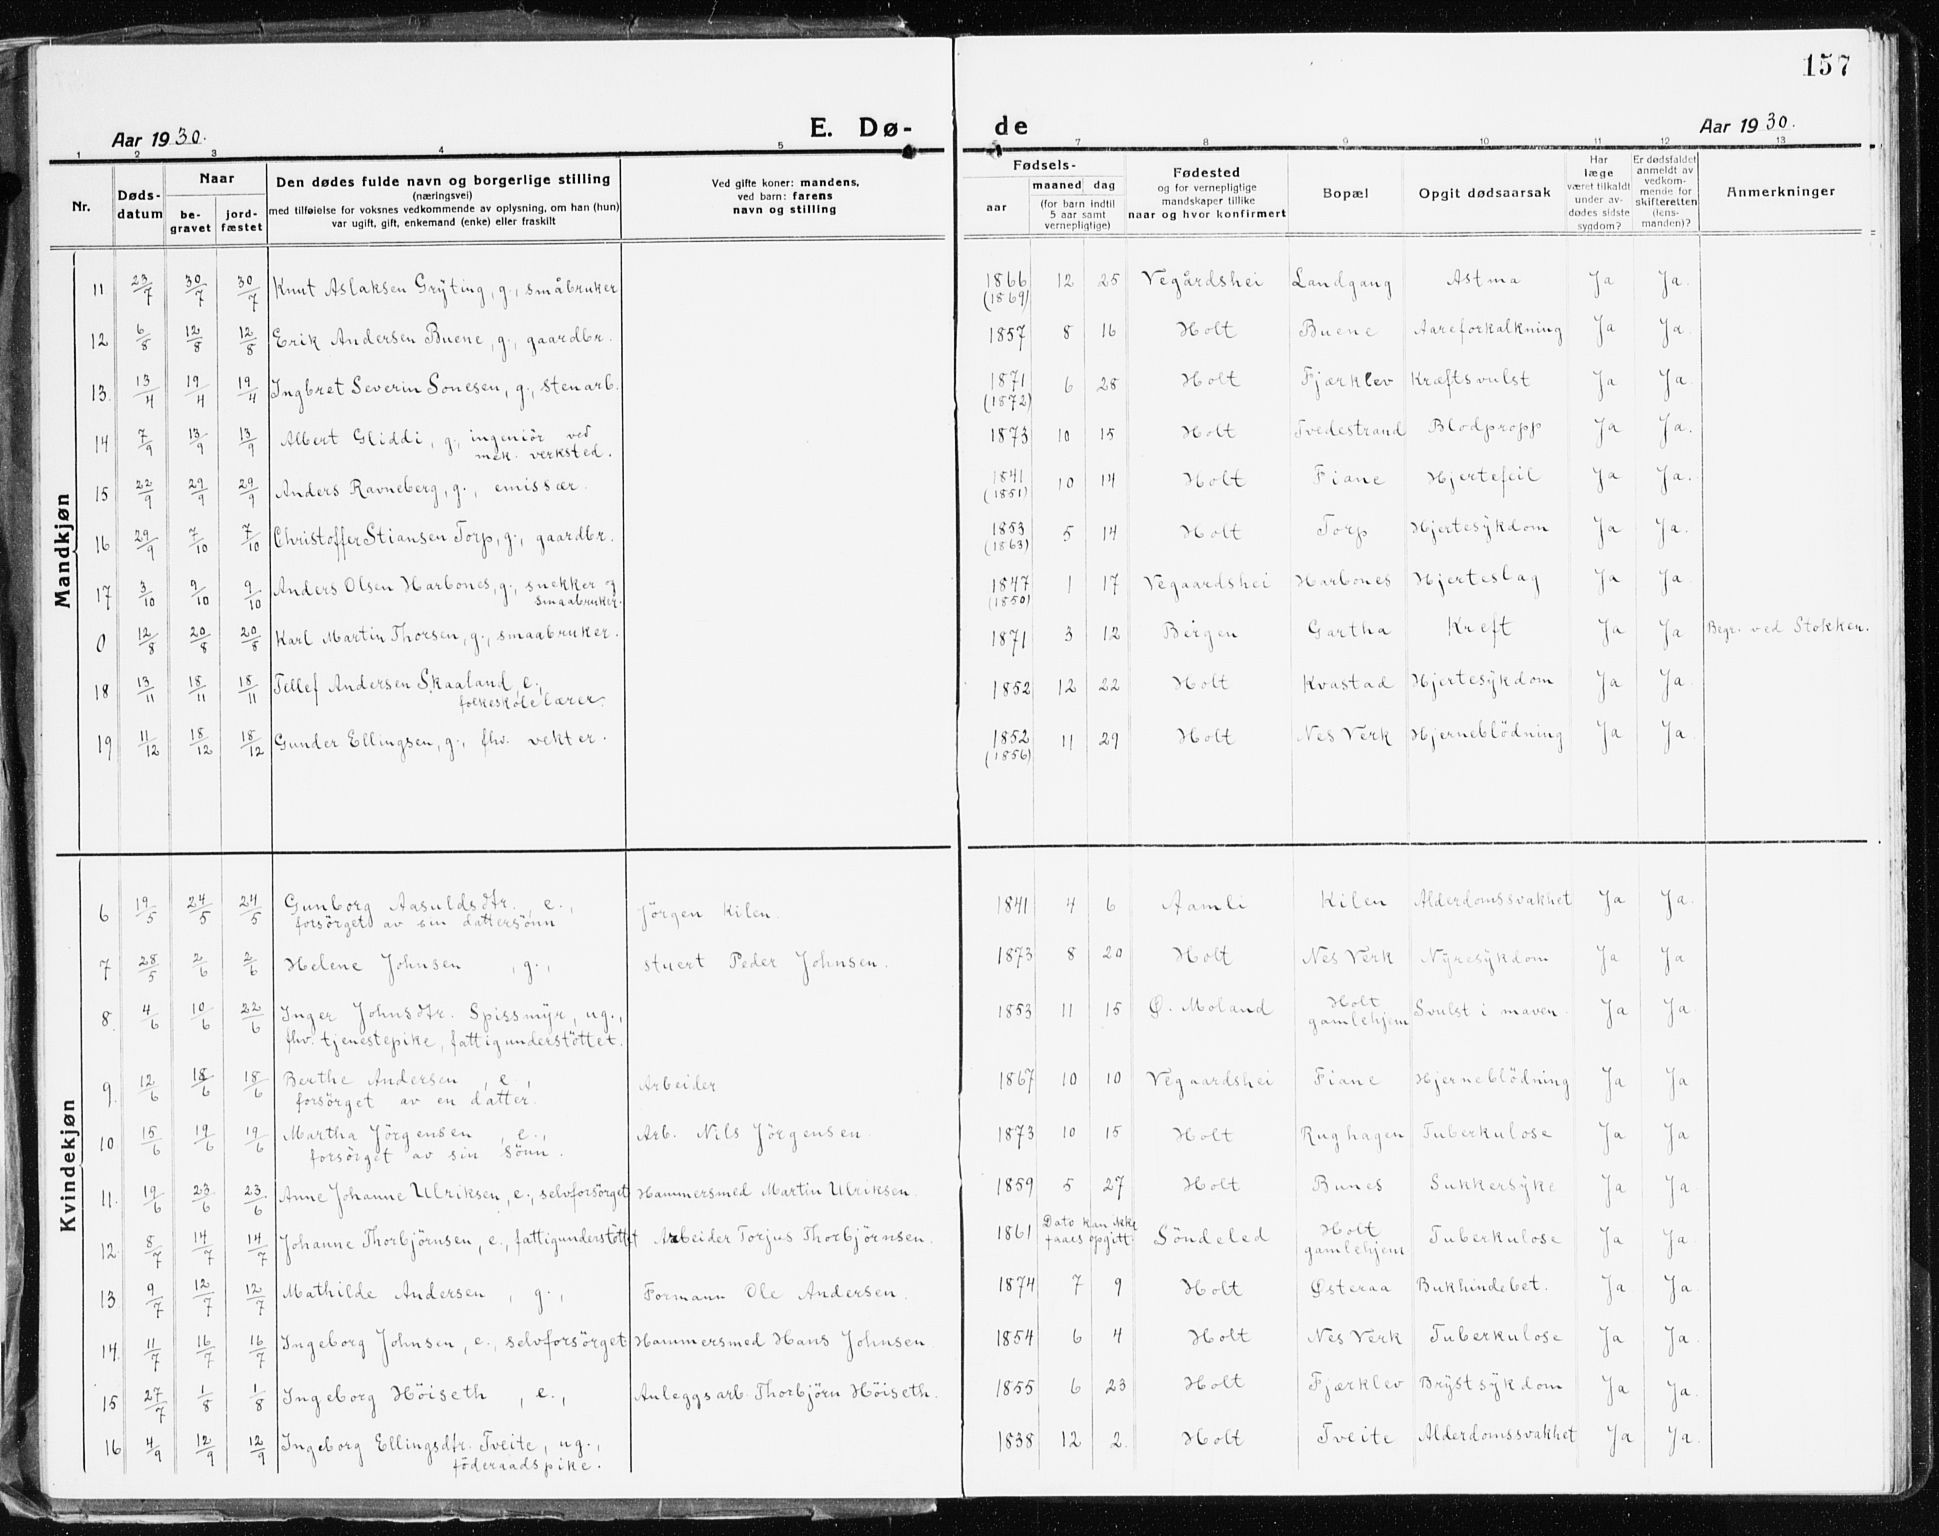 157
Aar 1930. E. Dø- de Aar 1930.
1 2 3 4 5 7 8 9 10 11 12 13
Nr. Døds-datum Naar be-gravet jord-fæstet Den dødes fulde navn og borgerlige stilling (næringsvei) med tilføielse for voksnes vedkommende av oplysning, om han (hun) var ugift, gift, enkemand (enke) eller fraskilt Ved gifte koner: mandens, ved barn: farens navn og stilling Fødsels- aar maaned dag (for barn indtil 5 aar samt vernepligtige) Fødested og for vernepligtige mandskaper tillike naar og hvor konfirmert Bopæl Opgit dødsaarsak Har læge været tilkaldt under av-dødes sidste sygdom? Er dødsfaldet anmeldt av vedkom-mende for skifteretten (lens-manden)? Anmerkninger
Mandkjøn
11 23/7 30/7 30/7 Knut Aslaksen Gryting, g., småbruker 1866 (1869) 12 25 Vegårdshei Landgang Astma Ja Ja.
12 6/8 12/8 12/8 Erik Andersen Buene, g., gaardbr. 1857 8 16 Holt Buene Aareforkalkning Ja Ja.
13. 13/4 19/4 19/4 Ingbret Severin Sonesen, g., stenarb. 1871 (1872) 6 28 Holt Fjærklev Kræftsvulst Ja Ja.
14 7/9 13/9 13/9 Albert Gliddi, g., ingeniör ved mek. verksted. 1873 10 15 Holt Tvedestrand Blodpropp Ja Ja.
15 22/9 29/9 29/9 Anders Ravneberg, g., emissær. 1841 (1851) 10 14 Holt Fiane Hjertefeil Ja Ja.
16 29/9 7/10 7/10 Christoffer Stiansen Torp, g., gaardbr. 1853 (1863) 5 14 Holt Torp Hjertesykdom Ja Ja.
17 3/10 9/10 9/10 Anders Olsen Harbones, g., snekker og smaabruker. 1847 (1850) 1 17 Vegaardshei Harbones Hjerteslag Ja Ja.
0 12/8 20/8 20/8 Karl Martin Thorsen, g., smaabruker. 1871 3 12 Bergen Gartha Kreft Ja Ja Begr. ved Stokken.
18 13/11 18/11 18/11 Tellef Andersen Skaaland, e., folkeskolelærer. 1852 12 22 Holt Kvastad Hjertesykdom Ja Ja.
19 11/12 18/12 18/12 Gunder Ellingsen, g., fhv. vekter. 1852 (1856) 11 29 Holt Nes Verk Hjerneblödning Ja Ja.
Kvindekjøn
6 19/5 24/5 24/5 Gunborg Aasuldsdtr., e., forsörget av sin dattersönn Jörgen Kilen. 1841 4 6 Aamli Kilen Alderdomssvakhet Ja Ja.
7 28/5 2/6 2/6 Helene Johnsen, g., stuert Peder Johnsen. 1873 8 20 Holt Nes Verk Nyresykdom Ja Ja
8. 4/6 10/6 22/6 Inger Johnsdtr. Spissmyr, ug., fhv. tjenestepike, fattigunderstöttet. 1853 11 15 Ø. Moland Holt gamlehjem Svulst i maven. Ja Ja
9. 12/6 18/6 18/6 Berthe Andersen, e., forsörget av en datter. Arbeider 1867 10 10 Vegaardshei Fiane Hjerneblödning Ja Ja
10 15/6 19/6 19/6 Martha Jörgensen, e., forsörget av sin sönn. Arb. Nils Jörgensen. 1873 10 15 Holt Rughagen Tuberkulose Ja Ja
11. 19/6 23/6 23/6 Anne Johanne Ulriksen, e., selvforsörget Hammersmed Martin Ulriksen. 1859 5 27 Holt Bunes Sukkersyke Ja Ja.
12. 8/7 14/7 14/7 Johanne Thorbjörnsen, e., fattigunderstöttet Arbeider Torjus Thorbjörnsen. 1861 Dato kan ikke faaes opgitt. Söndeled Holt gamlehjem Tuberkulose Ja Ja.
13 9/7 12/7 12/7 Mathilde Andersen, g., Formann Ole Andersen. 1874 7 9 Holt Østeraa Bukhindebet. Ja Ja.
14. 11/7 16/7 16/7 Ingeborg Johnsen, e., selvforsörget. Hammersmed Hans Johnsen. 1854 6 4 Holt Nes Verk Tuberkulose Ja Ja.
15 27/7 1/8 1/8 Ingeborg Höiseth, e., Anleggsarb. Thorbjörn Höiseth. 1855 6 23 Holt Fjærklev Brystsykdom Ja Ja.
16 4/9 12/9 12/9 Ingeborg Ellingsdtr. Tveite, ug., föderaadspike. 1838 12 2. Holt Tveite Alderdomssvakhet Ja Ja.